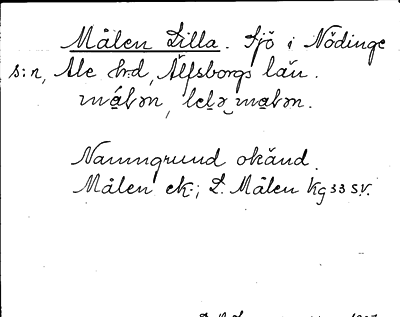 Målen Lilla. Sjö i Nödinge
s:n, Ale h:d, Älfsborgs län.
Namngrund okänd.
Målen ek; L. Målen Kg 33 sv.